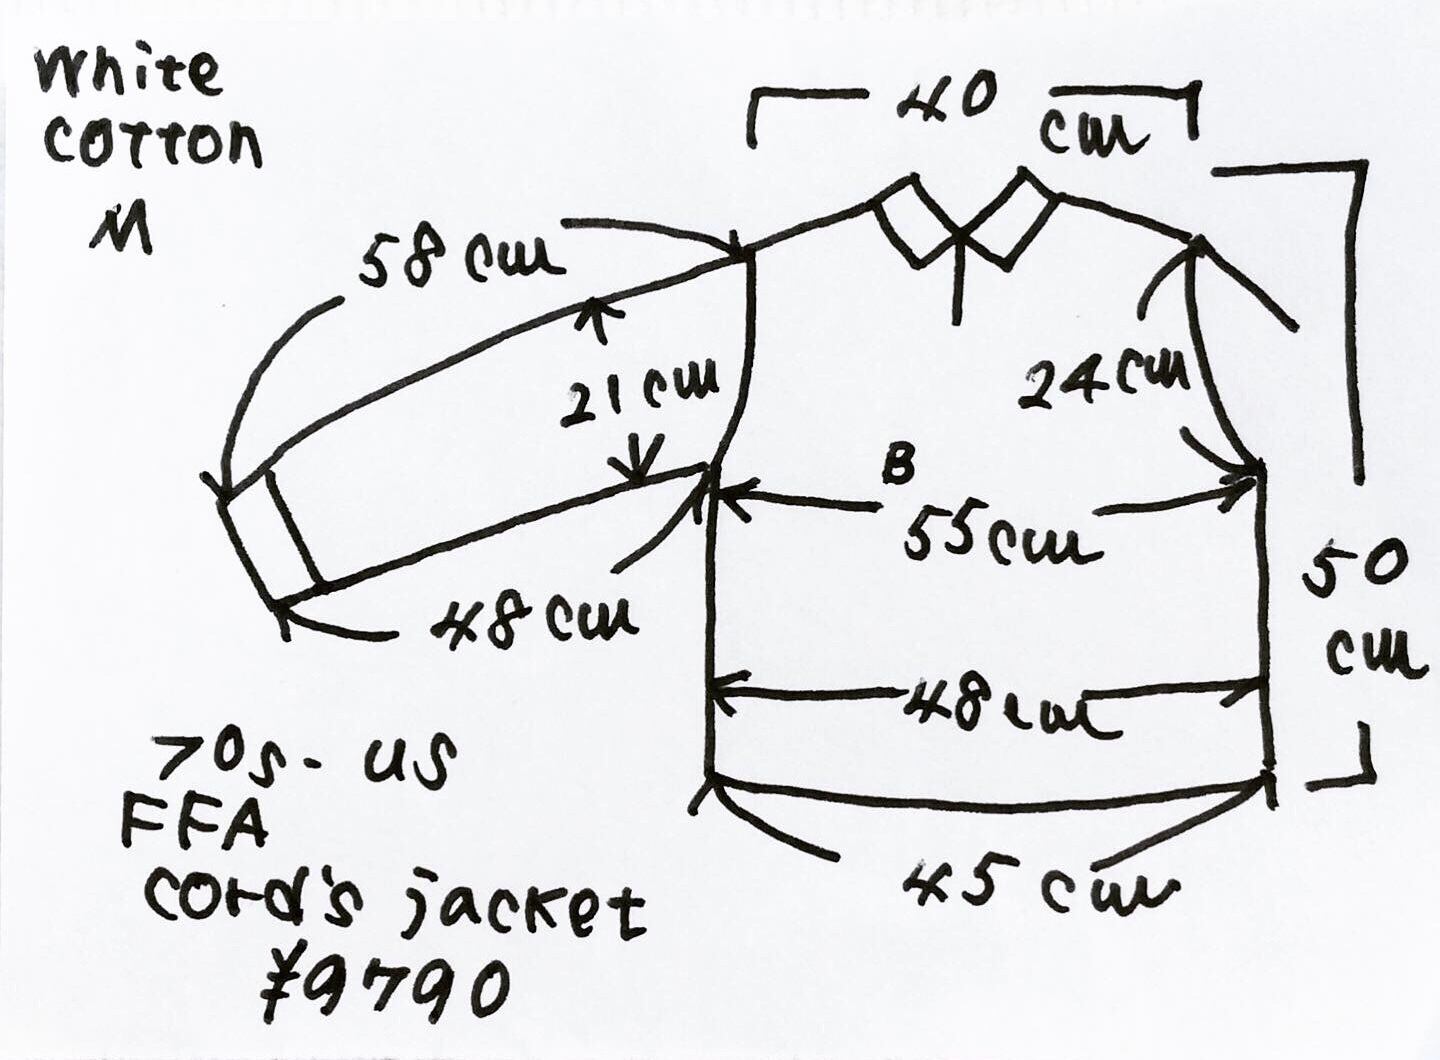 White
COTTON
M
40
cm
58 cm
21 cm
24 cm
B
55 cm
50
cm
48 cm
48 cm
45 cm
70s - US
FFA
cord's jacket
¥9790